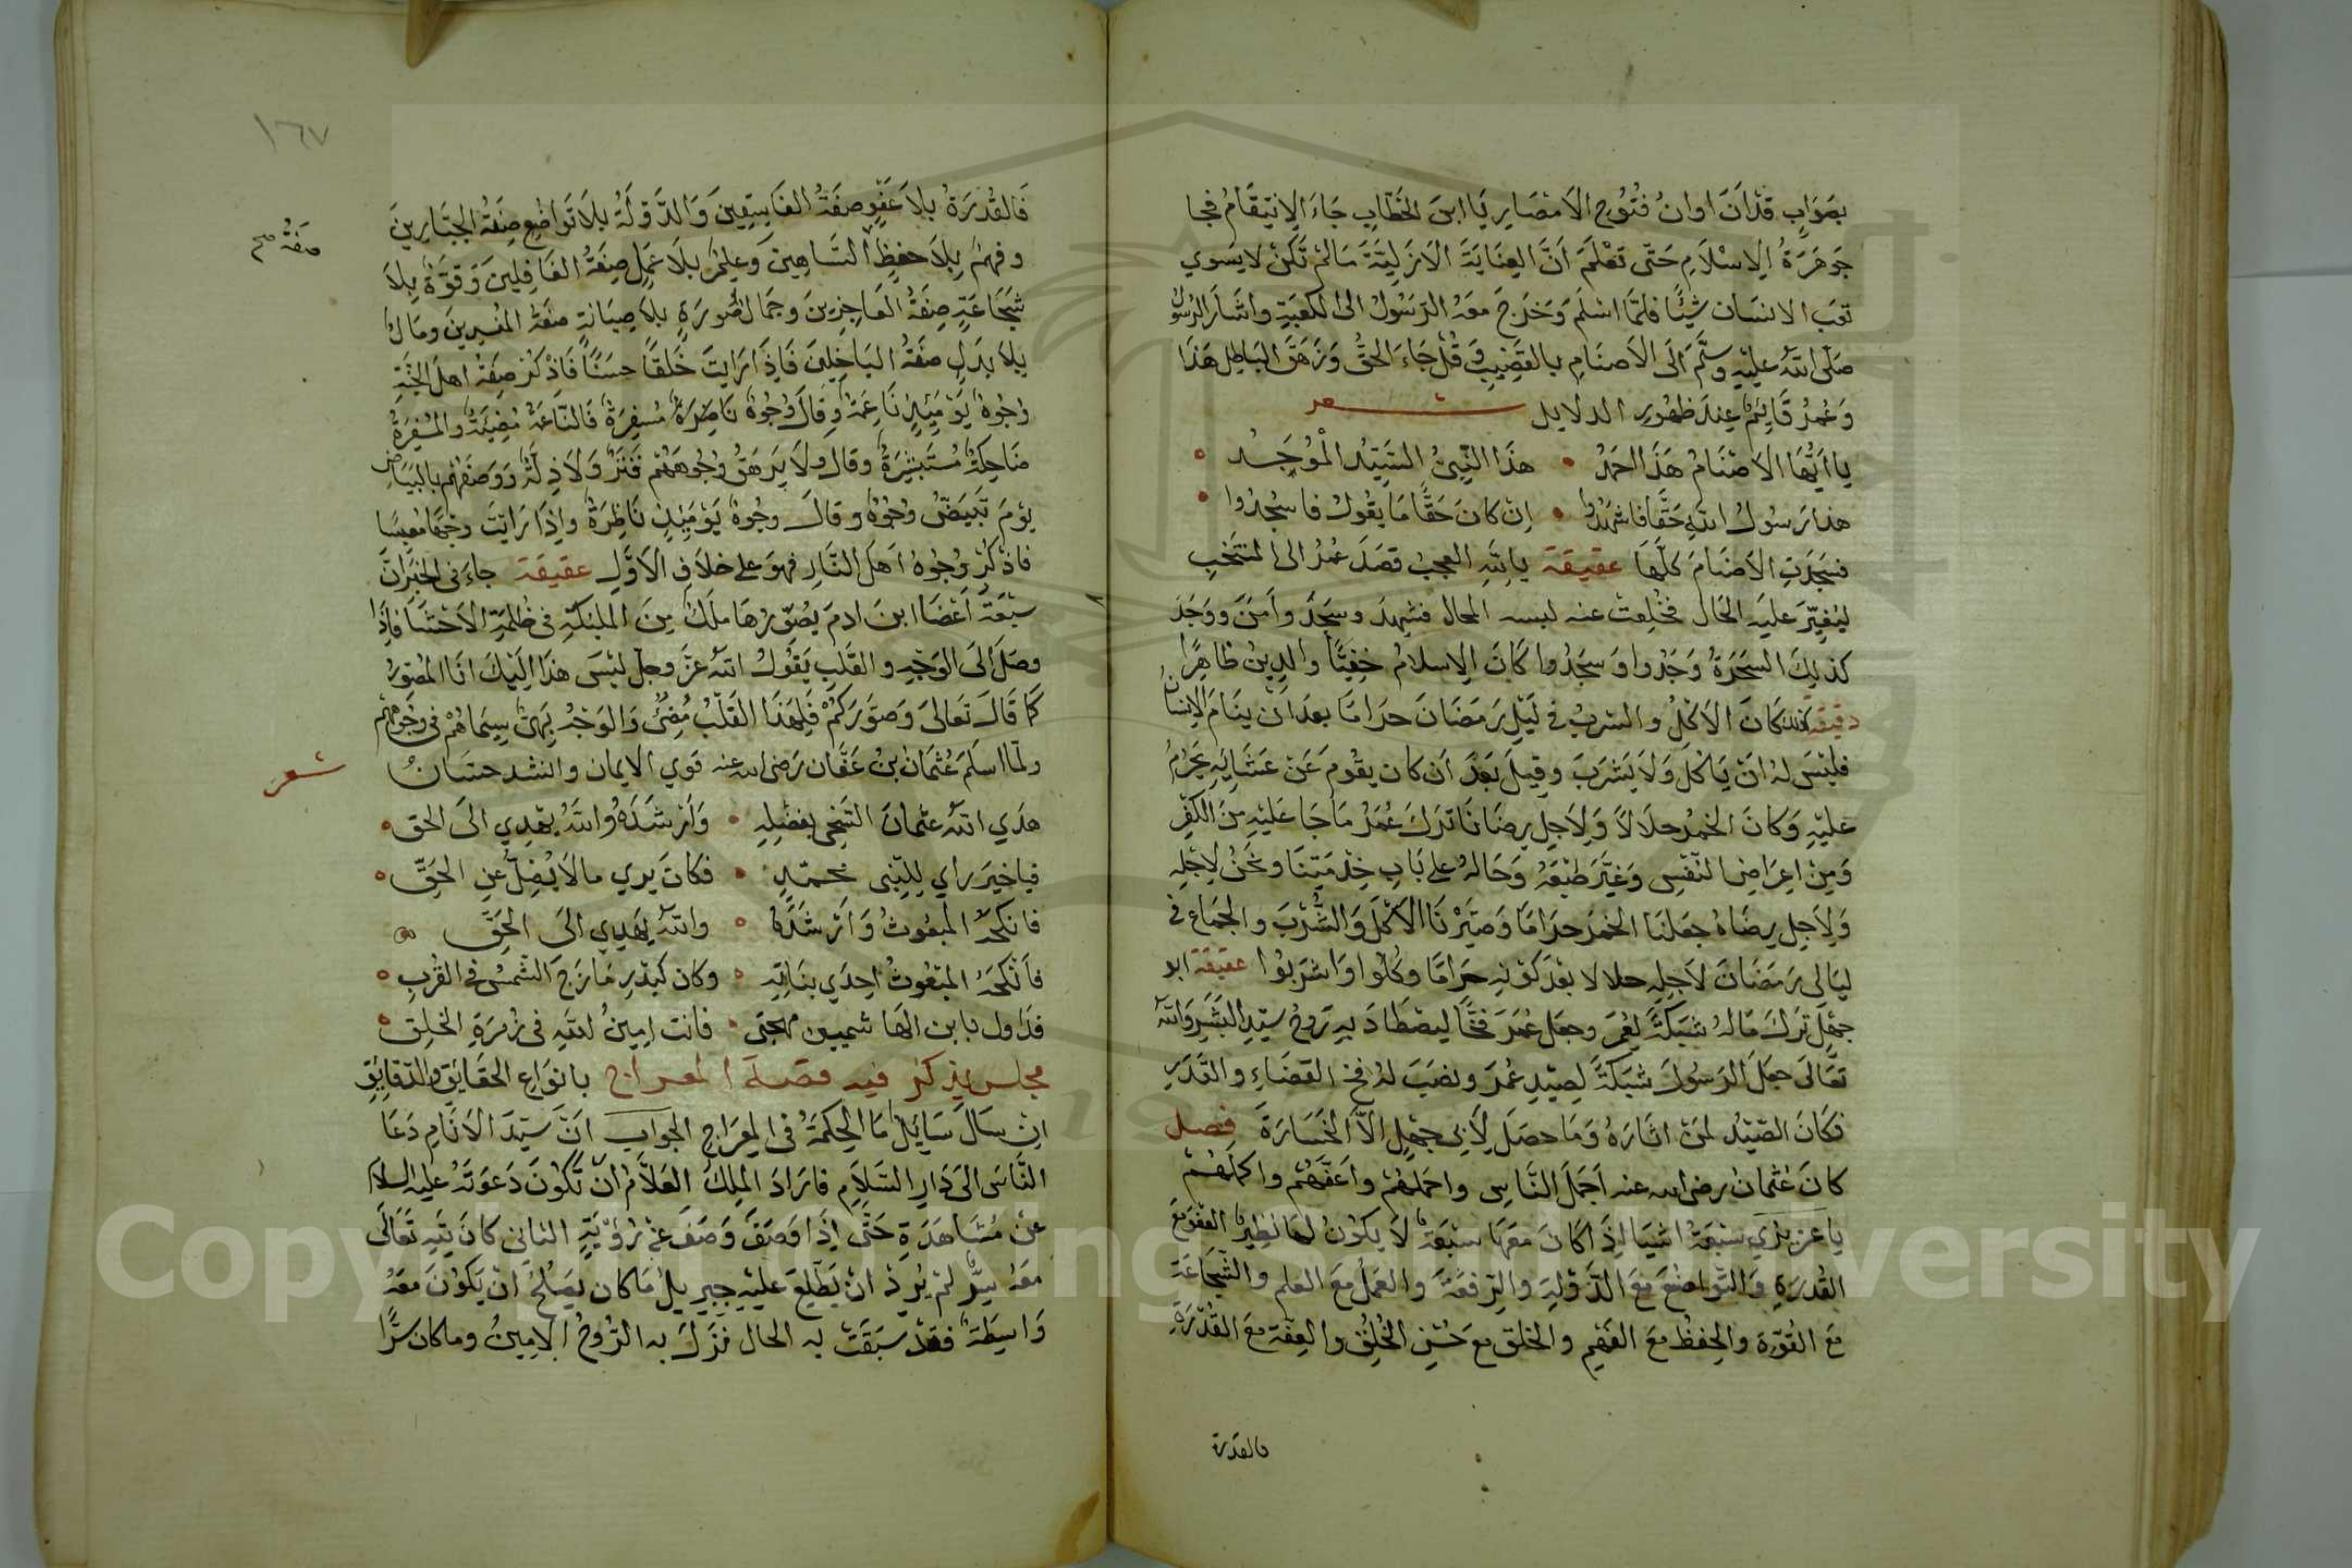 بصَوَابٍ قَدْ اَنَ اوانُ فُتُوحِ الاَمْصَارِ يَا ابنَ الخَطَّابِ جَاءَ الاِنتِقَامُ فجا
جَوهَرَةُ الاِسْلاَمِ حَتّى تَعْلَمَ اَنَّ العِنَايَةَ الاَزَلِيّةَ مَا لمْ تَكنْ لا يسَوي
تعَب الانسَان شيْئًا فلمَّا اسْلَم وَخَرجَ معَهُ الرّسُولُ الى الكعبَةِ واشَارَ الرسُولُ
صَلّى اللهُ عليْهِ وسَلّم الَى الاَصنَامِ بالقَضِيبِ وَقُلْ جَاءَ الحقُّ وَزَهَقَ البَاطِل هَذا
وَعُمرُ قَايِمٌ عِندَ ظهُورِ الدلايل شعر
يا اَيُّهَا الاَصْنَامُ هَذَا احمَدُ • هذَا النَّبِيُّ السَّيِّدُ المُوَحّدُ
هذا رَسُولُ اللهِ حَقًّا فاشهَدُوا • اِن كانَ حَقًّا مَا يقُولُ فاسْجُدُوا
فسَجَدَتِ الاَصْنَامَ كلّهَا عقيقة يا للهِ العجبُ قصَدَ عُمرُ الى المنتَخبِ
ليُغيِّرَ عليهِ الحَال فخُلِعتْ عنه لبسه المحال فشهِدَ وسجَدَ واَمنَ ووَجَدَ
كذلِكَ السَحَرَةُ وَجَدُوا وَسجَدُوا كَانَ الاِسلامُ خفِيًّا والدينُ ظاهِرًا
دقيقة كَانَ الاَكْلُ والشربُ في لَيْلِ رَمَضَانَ حرَامًا بعدَ انْ ينَامَ الاِنسَانُ
فليْسَ لهُ انْ يَاكلَ وَلاَ يَشرَبَ وقِيلَ بَعْدَ اَن كان يقُوم عَنْ عَشَائِهِ يَحْرُمُ
عليْهِ وَكانَ الخمْرُ حلاَلاً وَلاَجلِ رِضَانَا تَركَ عُمَرُ مَا جَا عَليْهِ مِنَ الكفْرِ
وَمِنْ اعِرَاضِ النَفْسِ وَغَيَّرَ طَبْعَهُ وَحَالهُ على بَابِ خِدْمَتِنَا ونحْنُ لاِجْلِهِ
وَلاَجلِ رِضَاهُ جعَلنَا الخمْرَ حرَامًا وَصَيَرْنَا الاَكْلَ وَالشُّرْبَ والجمَاع في
ليَالي رَمَضَانَ لاَجلِهِ حلالا بعْدَ كوْنِهِ حَرَامًا وكُلُوا وَاشرَبُوا عقيقة ابو
جهْلٍ تَركَ مَالهُ شبَكَةً لعُمرَ وجعَل عُمَرَ فخًّا ليصْطَادَ بهِ رَوحُ سيّدِ البَشَرِ وَاللهُ
تعَالى جعَلَ الرَسُولَ شبَكةً لِصَيْدِ عُمَرَ ونصَبَ لهُ فخ القضَاءِ والقَدَرِ
فكَانَ الصّيْدُ لمنْ اثارَهُ وَمَا حصَلَ لِأَبي جهْلٍ الاَّ الخسَارَةَ فصل
كانَ عُثمانُ رضى الله عنه اَجمَلَ النَّاسِ واحمَلهُمْ واَعَفَّهُم واكملَهُمْ
يا عزيزي سَبْعَةُ اشيَا اِذَا كانَ معَهَا سبْعَةٌ لاَ يكونُ لها نظِيرٌ العفوُ مَعَ
القُدرَةِ والتّواضُعَ معَ الدَّوْلةِ والرّفعَةَ والعمَلُ معَ العلم والشّجَاعَة
مَعَ القُوّة والحِفظُ معَ الفَهْمِ والخلق معَ حُسْنِ الخُلقِ والعِفّة معَ القُدْرَةِ
فالقدرة
١٦٧
فَالقُدْرَةُ بلاَ عَفْوٍ صفَةُ الفَاسِقِينَ وَالدَّوْلَةُ بلاَ تَواضُعٍ صِفَةُ الجبّارِينَ
وفهمٌ بِلاَ حفظٍ السَّاهِينَ وعِلمٌ بلاَ عمَلٍ صِفَةُ الغَافِلينَ وَقوَّةٌ بِلاَ
صفَةُ صح
شَجَاعَةٍ صِفَةُ العَاجِزِينَ وجمَال صُورَةٍ بلاَ صيَانةٍ صفَةُ المفسِدينَ ومَالٌ
بلاَ بذلٍ صفَةُ البَاخِلِينَ فَاِذَا رَايتَ خَلقًا حسَنًا فَاذْكرْ صِفَةَ اهلِ الجنّةِ
وُجُوهٌ يَوْمَئِذٍ نَاعِمَةٌ وقالَ وُجُوهٌ نَاضِرَةٌ مُسْفِرَةٌ فَالنّاعَمةُ مُضِيئَةٌ والمسْفِرَةُ
ضَاحِكةٌ مُسْتَبشِرَةٌ وقالَ ولاَ يَرهَقُ وُجُوهَهُمْ قَتَرٌ وَلاَ ذِلّةٌ وَوَصَفَهُم بالبَيَاضِ
يوْمَ تَبْيَضُّ وُجُوهٌ وقالَ وجُوهٌ يَوْمَئِذٍ نَاظِرَةٌ واِذَا رَايتَ وجْهًا مُعبِسًا
فاذْكُرْ وُجُوهَ اَهلَ النّارِ فهوَ على خلاَفِ الاَوَّلِ عقيقة جاءَ في الخبَرِ انَّ
سبْعَةَ اَعْضَا ابنَ ادمَ يُصَوّرُهَا ملَكٌ مِنَ الملئكةِ في ظلمَةِ الاَحْشَا فاِذَا
وصَلَ الَى الوَجهِ والقَلبِ يَقُولُ اللهُ عزَّ وجلّ ليْسَ هذا اِلَيْكَ انَا المُصَوّرُ
كمَا قَالَ تعَالىَ وَصَوّرَكمْ فَلِهَذَا القَلْبُ مُضئٌ وَالوَجْهُ بَهِيٌّ سِيمَاهُمْ في وُجُوهِهِمْ
ولمّا اسلَمَ عُثمَانُ بنُ عَفّانَ رَضى الله عنه قوي الايمان وانشد حسَانُ
شعر
هدَي اللهُ عثمانَ السَّخِي بفضْلِهِ • وَاَرْشدَهُ واللهُ يهْدِي الَى الحق
فيا خيرَ راي لِلنّبى محمّدٍ • فكانَ يرَي مالاَ يُضِلُّ عنِ الحَقِّ
فانكحَهُ المبْعُوثُ وَاَرْشدَهُ • واللهُ يَهْدِي الَى الحَقِّ
فَاَنْكحَهُ المبْعُوثُ اِحدَي بنَاتِهِ • وكان كبدْرٍ مَازجَ الشّمسَ في القُربِ
فداول يا بن الهَاشميين مهجتي • فانت امينُ اللهِ فى زمرَةِ الخلق
مجلس يذكر فيه قصة المعراج بانوَاعِ الحقَايقِ والدّقايقِ
اِنْ سَالَ سَايِلٌ مَا الحِكمَةُ في المِعرَاجِ الجوَابِ انّ سَيّدَ الاَنَامِ دَعَا
النَّاسَ الىَ دَارِ السَّلاَمِ فارَادَ المَلِكُ العَلاَّمُ اَنْ تَكُونَ دَعوَتَهُ عليهِ السلاَم
عَنْ مُشَاهَدَةٍ حَتّى اِذَا وَصَفَ وَصَفَ عَنْ رُؤْيَةٍ الثانى كانَ للهِ تعَالَى
معَهُ سِرٌّ لمْ يُرِدْ انْ يَطّلِعَ عليْهِ جبرِيلُ مَا كان يصلُحُ انْ يَكوُنَ معَهُ
وَاسِطَةٌ فقدْ سبَقَتْ به الحال نزَلَ به الرُّوحُ الاَمِينُ وما كانَ سرًّا